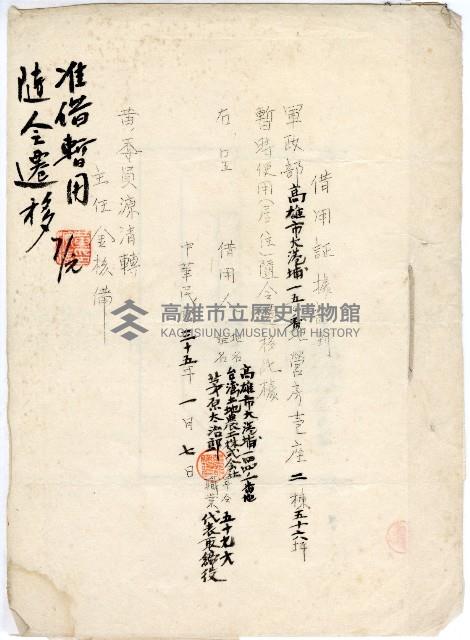 借用証據
軍政部高雄市大港埔一五 番地營房壹座二棟五十六坪
暫時使用(居住)隨令遷移此據
右呈
借用人
高雄市大港埔一四四ノ一番地
台湾土地農工株式会社
茅原太治郎
職業
五十九才
代表取締役
中華民國三十五年一月七日
黃委員源清轉
主任金核備
准借暫用
隨令遷移
高雄市立歷史博物館
KAOHSIUNG MUSEUM OF HISTORY